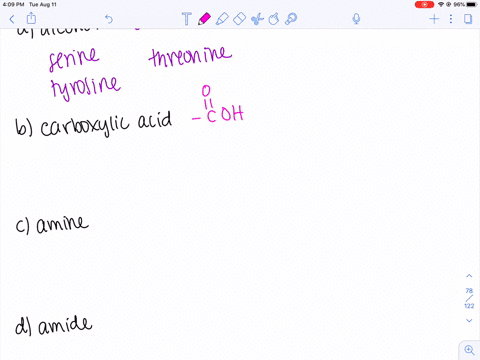 4:09 PM Tue Aug 11
96%
a) alcohol
serine threonine
tyrosine
O
b) carboxylic acid – C OH
c) amine
d) amide
78
/
122